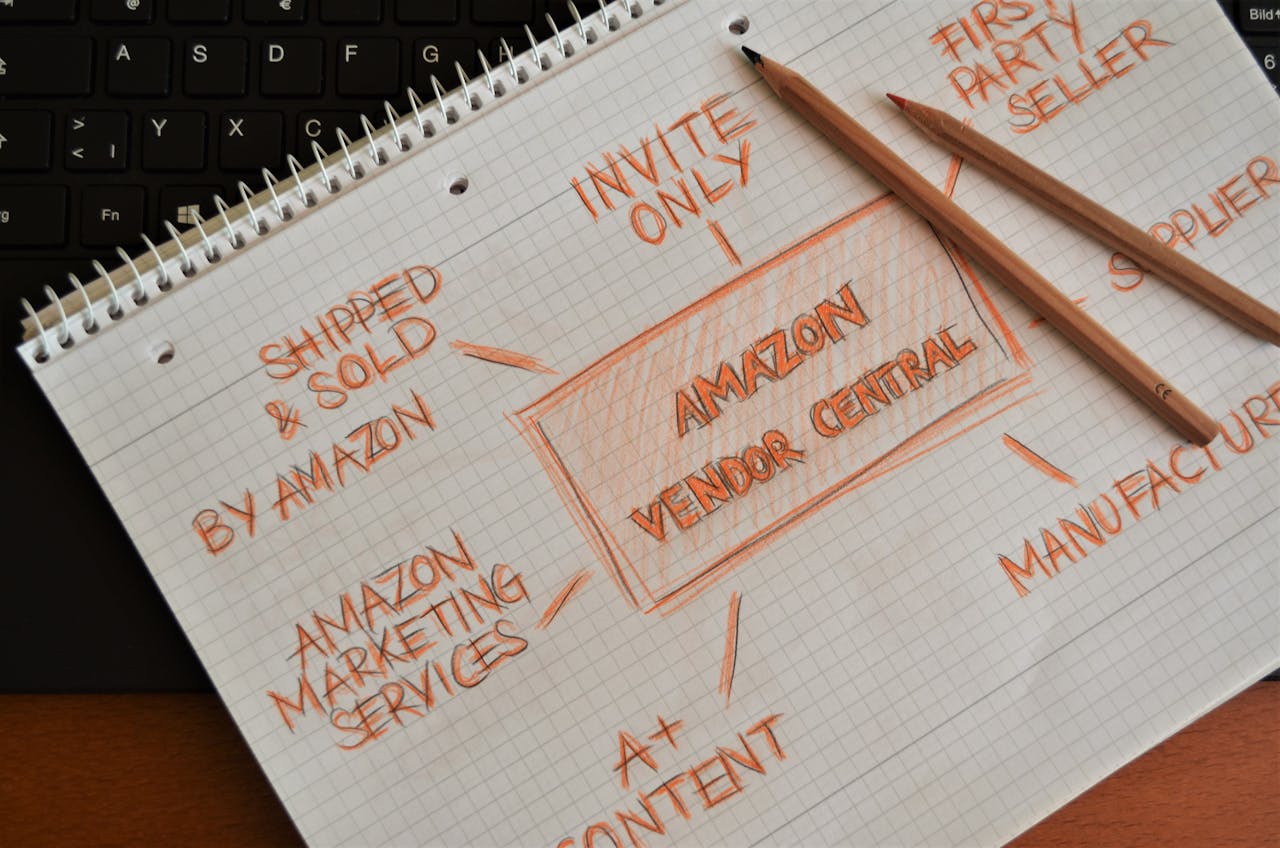 A S D F G H
> < | Y X C
Fn
Bild
6
€
INVITE
ONLY
FIRST
PARTY
SELLER
SUPPLIER
SHIPPED
& SOLD
BY AMAZON
AMAZON
VENDOR CENTRAL
MANUFACTURE
AMAZON
MARKETING
SERVICES
A+
CONTENT